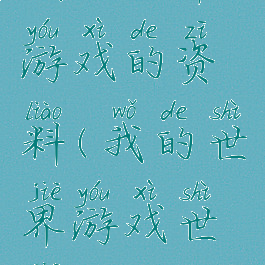 yóu xì de zī
游戏的资
liào wǒ de shì
料(我的世
jiè yóu xì shì
界游戏世